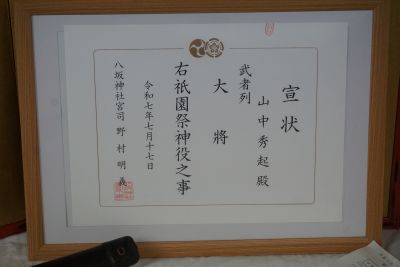 宣状
山中秀起殿
武者列
大將
右祇園祭神役之事
令和七年七月十七日
八坂神社宮司 野村明義